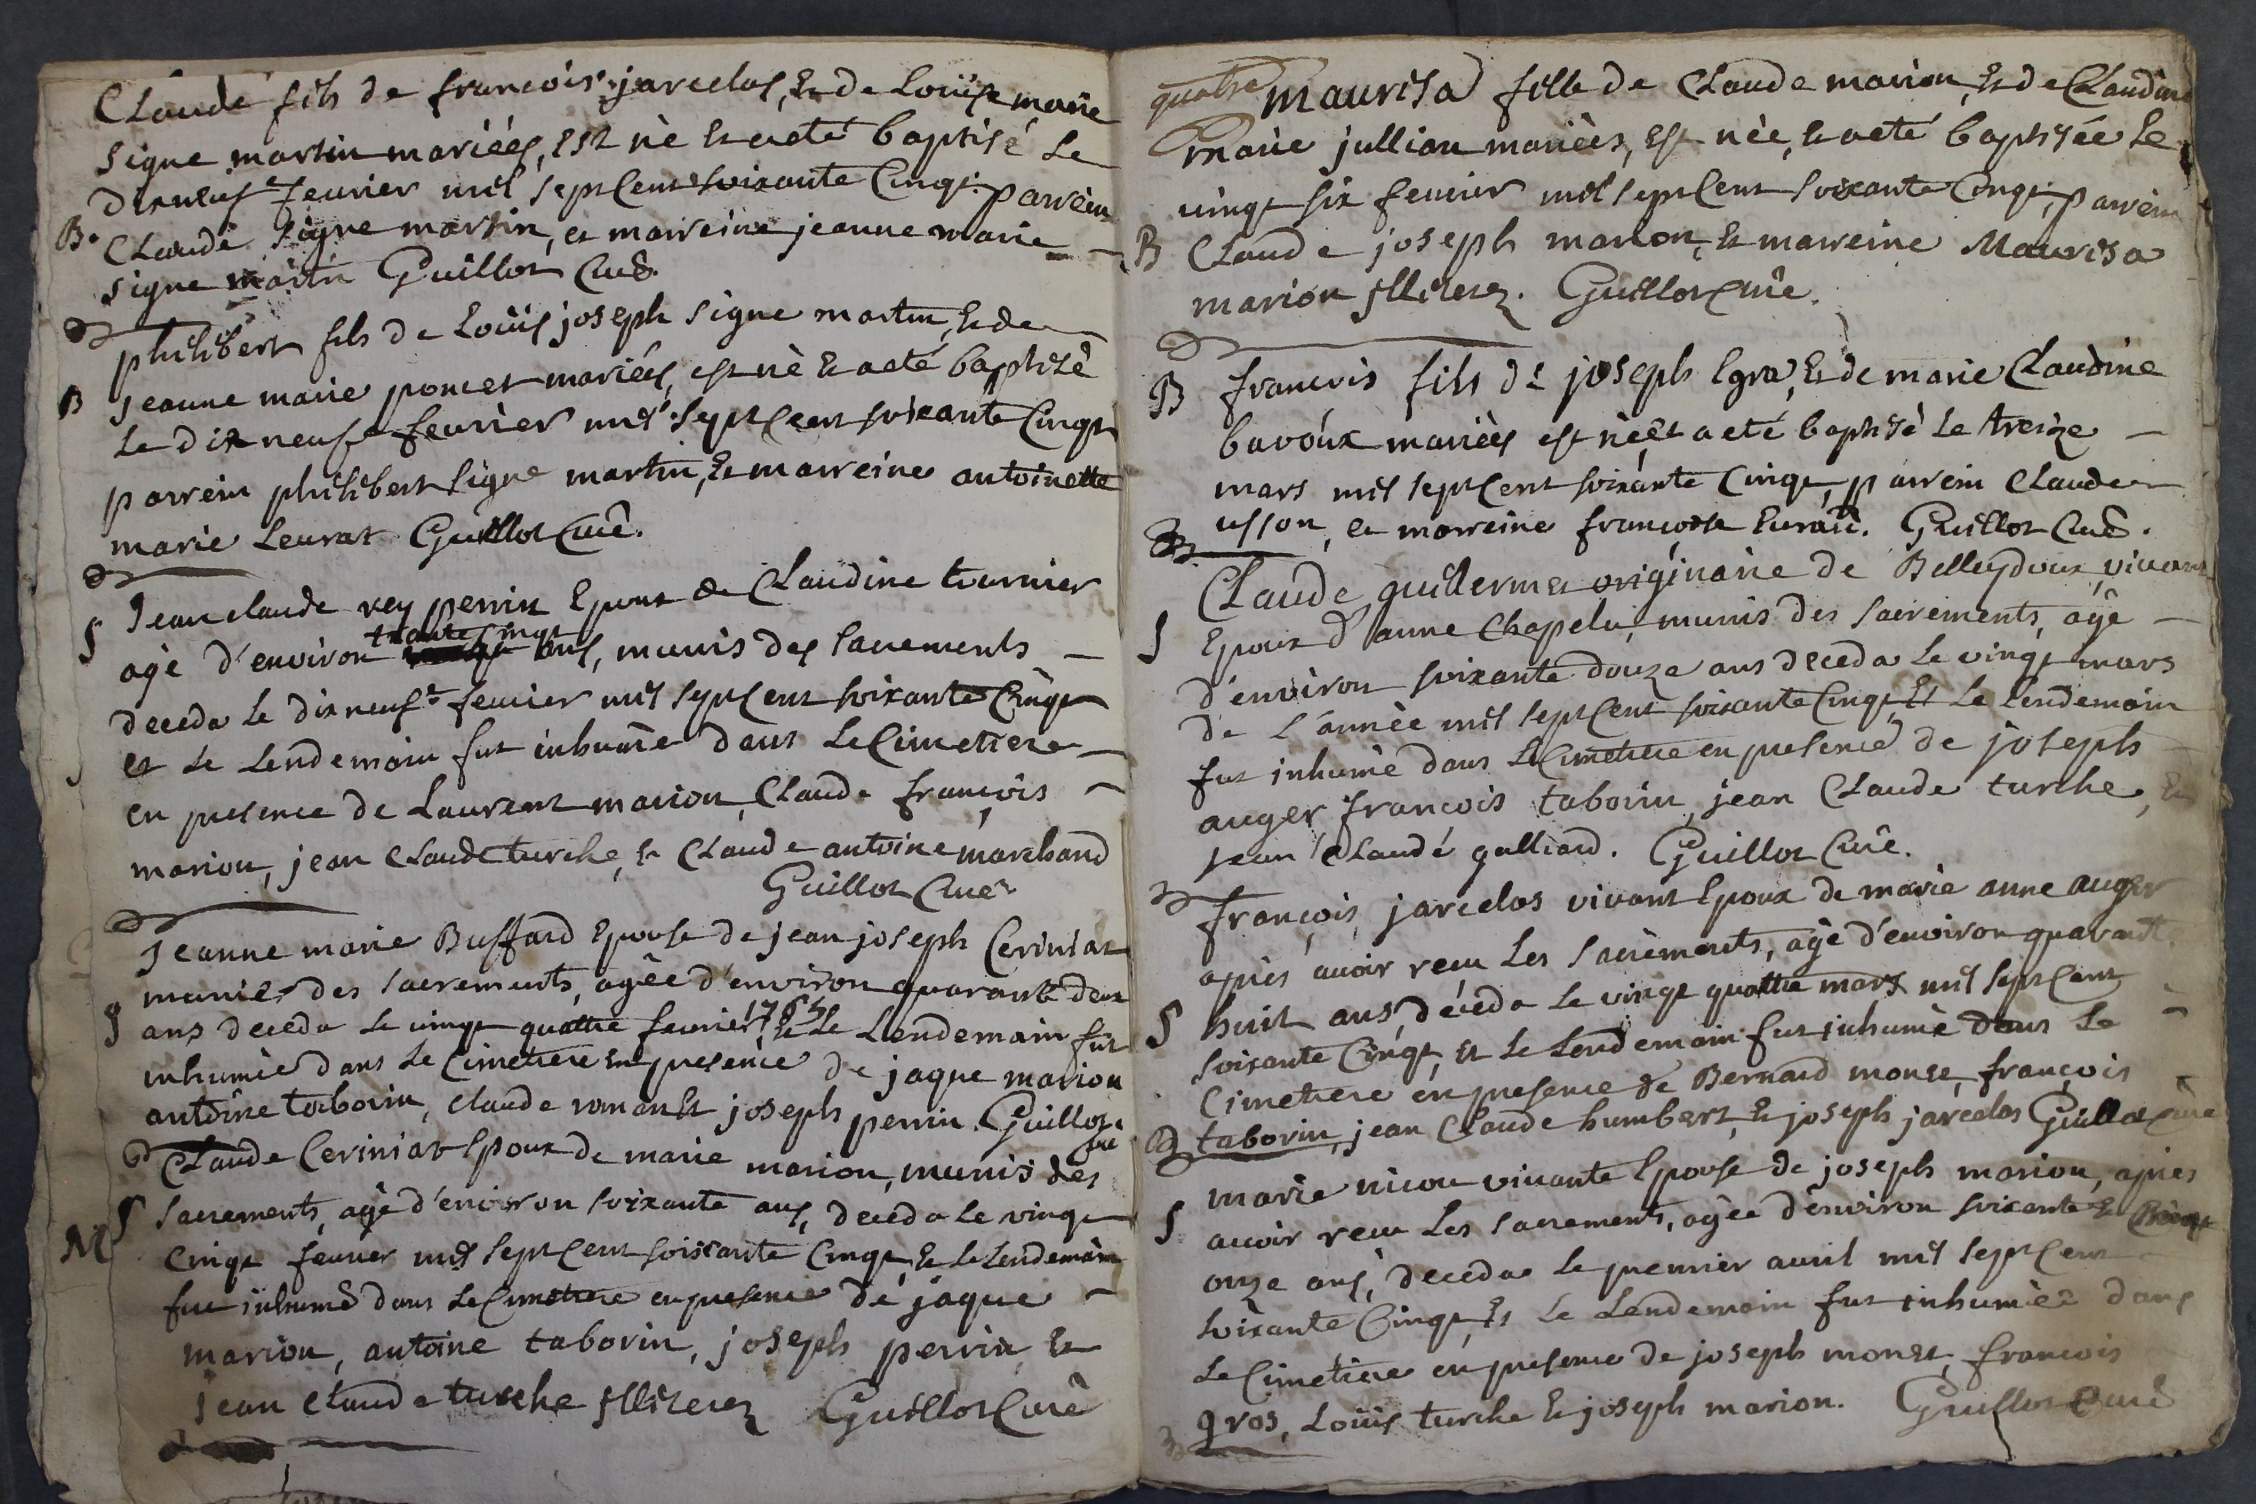 Claude fils de francois jarcelas, Et de Loüise marie
sigue martin mariéés, Est né Et aeté baptisé Le
dixneuf feurier mil septCent soixante Cinqt. parrein
B. Claude sigue martin, et marreine jeanne marie
sigue martin Guillot Curé.
philibert fils de Loüis joseph sigue martin, Et de
B Jeanne marie poncet mariéés, est né Et aeté baptisé
Le dix neuf feurier mil septCent soixante Cinqt
parrein philibert sigue martin, Et marreine antoinette
marie Leurat Guillot Curé.
S Jean claude rey perrin Epoux de Claudine tournier
agé d'environ trante Cinqt ans, munis des sacrements
deceda le dixneuf feurier mil septCent soixante Cinqt
et Le Lendemain fut inhumé dans LeCimetiere
en presence de Laurent marion, Claude françois
marion, jean claude turche, Et Claude antoine marchand
Guillot Curé
Jeanne marie Buffard Epouse de jean joseph Ceriniat
munie des sacrements, agée d'environ quarante deux
S ans deceda Le vingt quattre feurier 1765 Et Le Lendemain fut
inhumée dans Le Cimetiere En presence de jaque marion
antoine taborin, claude roman Et joseph perrin. Guillot
Curé
Claude Ceriniat Epoux de marie marion, munis des
M S sacrements, agé d'environ soixante ans, deceda Le vingt
Cinqt feurier mil septCent soixante Cinqt, Et LeLendemain
fut inhumé dans LeCimetiere enpresence de jaque
marion, antoine taborin, joseph perrin Et
jean Claude turche jlliterez Guillot Curé
quatre Maurisa fille de Claude marion, Et de Claudine
marie jullian mariéés, Est née, Et aeté baptisée Le
vingt six feurier mil septCent soixante Cinqt, parrein
B Claude joseph marion, Et marreine Maurisa
marion jlliterez. Guillot Curé.
B francois fils de joseph Egra, Et de marie Claudine
bavoux mariéés est né et a eté baptisé Le treize
mars mil septCent soixante Cinqt, parrein Claude
usson, et marreine francoise Eurard. Guillot Curé.
Claude guillermet originaire de Belleydoux vivant
S Epoux d'anne Chapelu, munis des sacrements, agé
d'environ soixante douze ans deceda Le vingt mars
de L'année mil septCent soixante Cinqt, Et Le Lendemain
fut inhumé dans LeCimetiere en presence de joseph
auger francois taborin, jean Claude turche, Et
jean Claude galliard. Guillot Curé.
françois jarcelas vivant Epoux de marie anne auger
aprés avoir recu Les sacrements, agé d'environ quarante
S huit ans, déceda Le vingt quattre mars mil septCent
soixante Cinqt, Et Le Lendemain fut inhumé dans Le
Cimetiere en presence de Bernard monse, françois
taborin, jean Claude humbert, Et joseph jarcelas Guillot Curé
marie nicou vivante Epouse de joseph marion, aprés
S avoir recu Les sacrements, agée d'environ soixante Et
onze ans, deceda Le premier avril mil septCent
soixante Cinqt, Et Le Lendemain fut inhumée dans
Le Cimetiere en presence de joseph monet, francois
gros, Loüis turche Et joseph marion. Guillot Curé